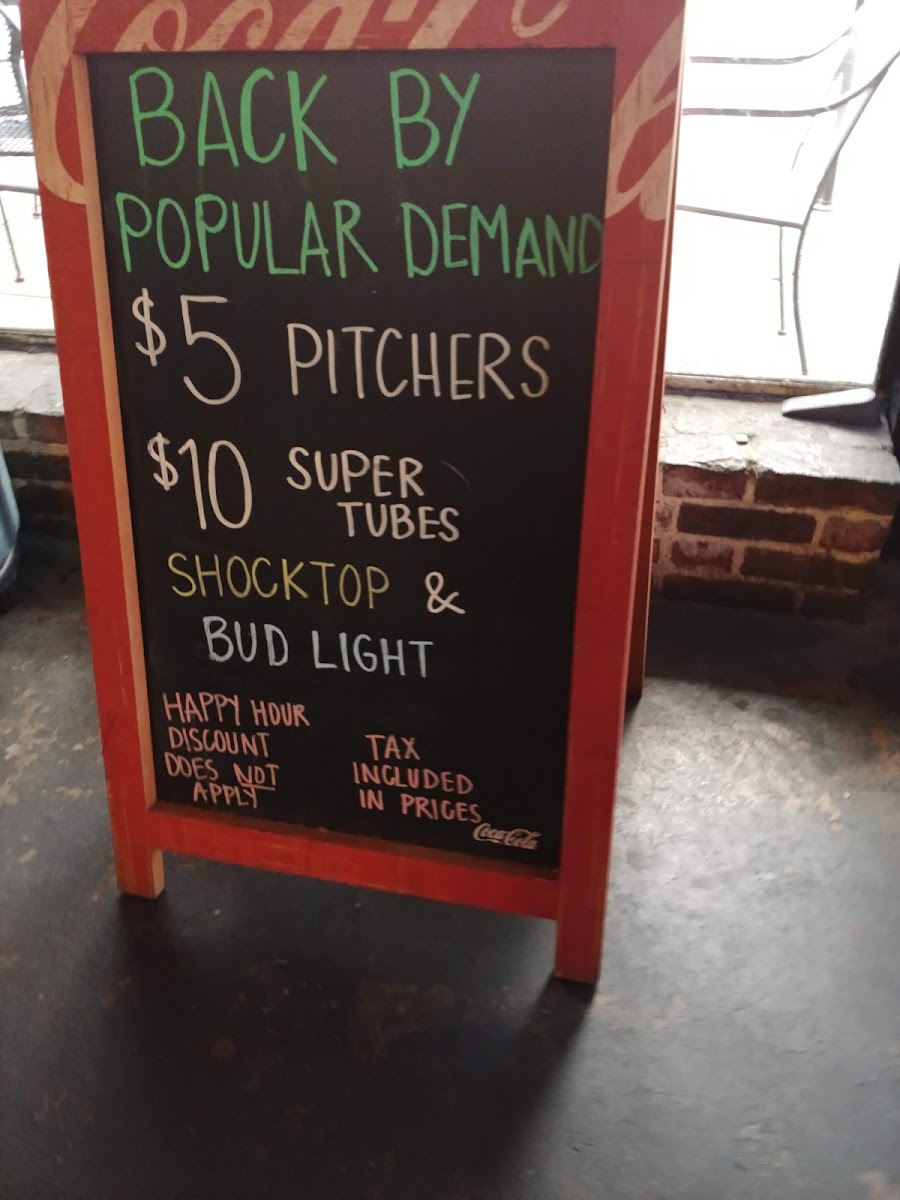 Coca-Cola
BACK BY
POPULAR DEMAND
$5 PITCHERS
$10 SUPER
TUBES
SHOCKTOP &
BUD LIGHT
HAPPY HOUR
DISCOUNT
DOES NOT
APPLY
TAX
INCLUDED
IN PRICES
Coca-Cola